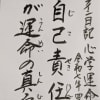 日記 心学運命
令和七年
自己責任
が運命の真